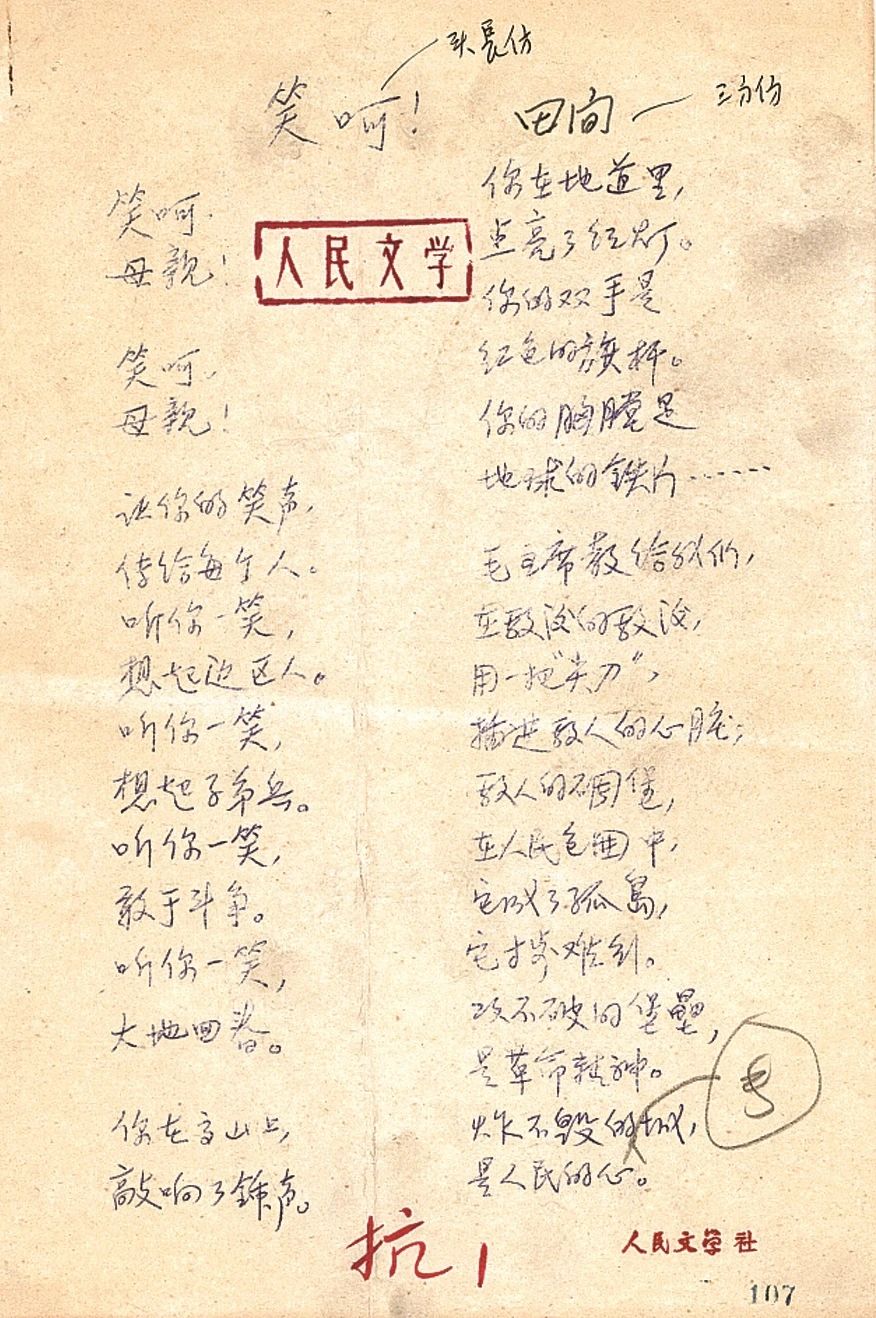 头长仿
笑呵！
田间
三方仿
人民文学
笑呵，
母亲！
笑呵，
母亲！
让你的笑声，
传给每个人。
听你一笑，
想起边区人。
听你一笑，
想起子弟兵。
听你一笑，
敢于斗争。
听你一笑，
大地回春。
你在高山上，
敲响了钟声。
你在地道里，
点亮了红灯。
你的双手是
红色的旗杆。
你的胸膛是
地球的铁片……
毛主席教给我们，
在敌后的敌后，
用一把“尖刀”，
插进敌人的心脏；
敌人的碉堡，
在人民包围中，
它成了孤岛，
它寸步难行。
攻不破的堡垒，
是革命精神。
炸不毁的城，
是人民的心。
抗1
人民文学社
107